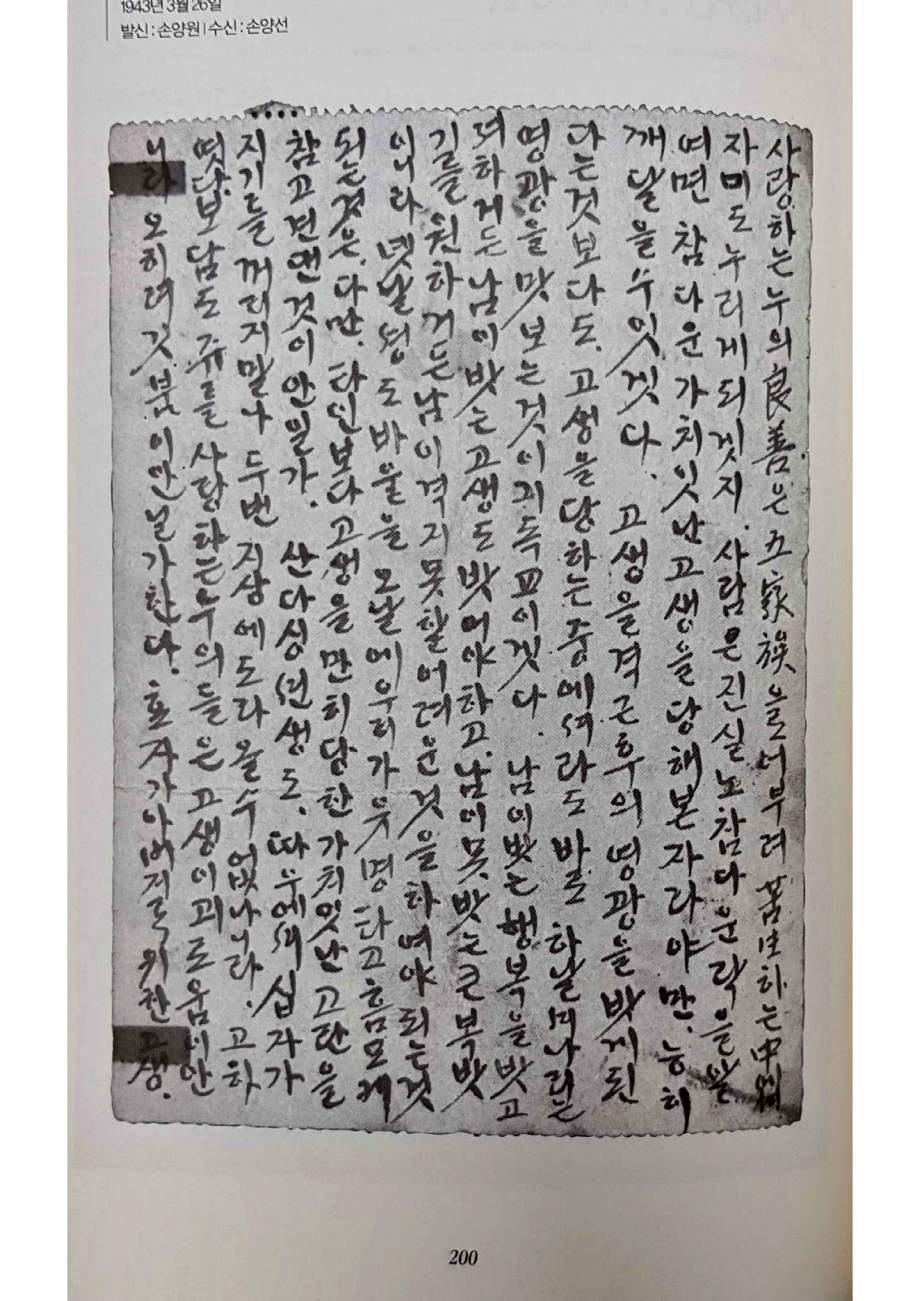 1943년 3월 26일
발신 : 손양원 | 수신 : 손양선
사랑하는 누의 良善은 五家族을 더부려 苦生하는 中
자미도 누리게 되겟지. 사람은 진실노 참다운 락을 맛볼
여면 참다운 가치잇난 고생을 당해본 자라야만, 능히
깨달을 수 잇겟다. 고생을 격근 후의 영광을 밧게 된
다는 것보다도. 고생을 당하는 중에서라도 바로 하날나라
영광을 맛보는 것이 긔독교이겟다. 남이 밧는 행복을 밧고
저 하거든 남이 밧는 고생도 밧어야 하고. 남이 못 밧는 큰 복 밧
기를 원하거든 남이 격지 못할 어려운 것을 하여야 되는 것
이니라 녯날 성도 바울을 오날에 우리가 유명타고 흠모케
되는 것은. 다만. 타인보다 고생을 만히 당한 가치잇난 고난을
참고 견댄 것이 안일가. 산다싱 선생도. 따우에셔 십자가
지기를 꺼리지 말나 두번 지상에 도라올 수 업나니라. 고하
엿답보담도 쥬를 사랑하는 우의들은 고생이 괴로움이 안
니라 오히려 깃붐이 안닐가 한다. 효자가 아버지를 위한 고생.
200